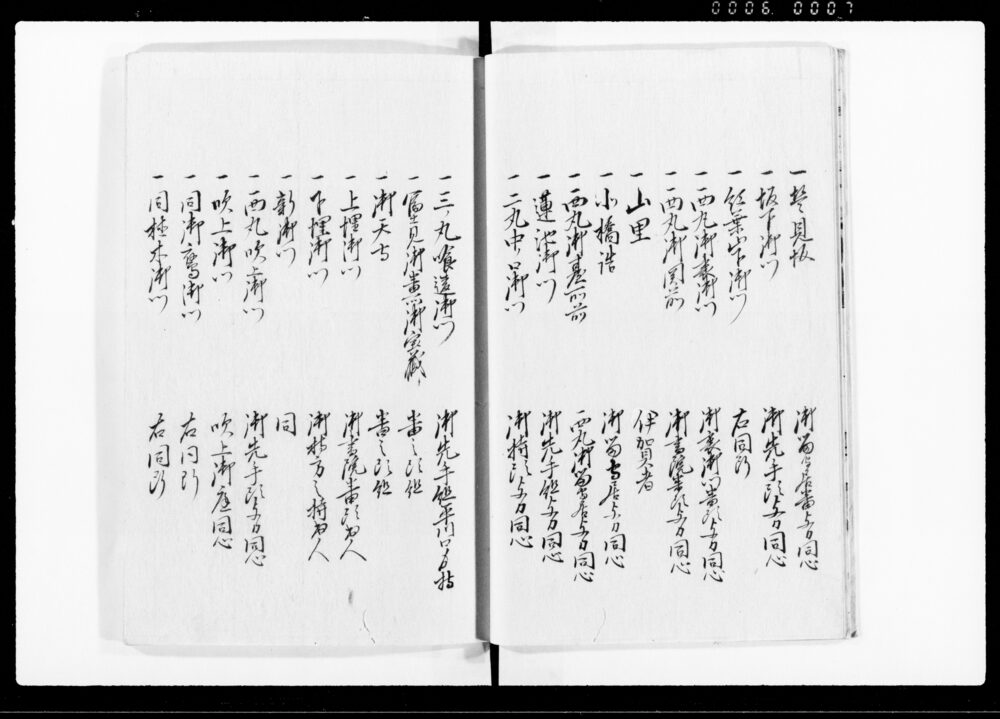 0006 0007
一 汐見坂 御留守居番与力同心
一 坂下御門 御先手頭与力同心
一 紅葉山下御門 右同断
一 西丸御裏御門 御裏御門番頭与力同心
一 西丸御関前 御書院番頭与力同心
一 山里 伊賀者
一 小橋詰 御留守居与力同心
一 西丸御台所前 西丸御留守居与力同心
一 蓮池御門 御先手組与力同心
一 二丸中ノ口御門 御持頭与力同心
一 三ノ丸喰違御門 御先手組平川口ゟ持
一 富士見御番所御宝蔵 番之頭組
一 御天守 番之頭組
一 上埋御門 御書院番頭
一 下埋御門 御
一 新御門 同
一 西丸吹上御門 御先手頭与力同心
一 吹上御門 吹上御庭同心
一 同御鷹御門 右同断
一 同植木御門 右同断